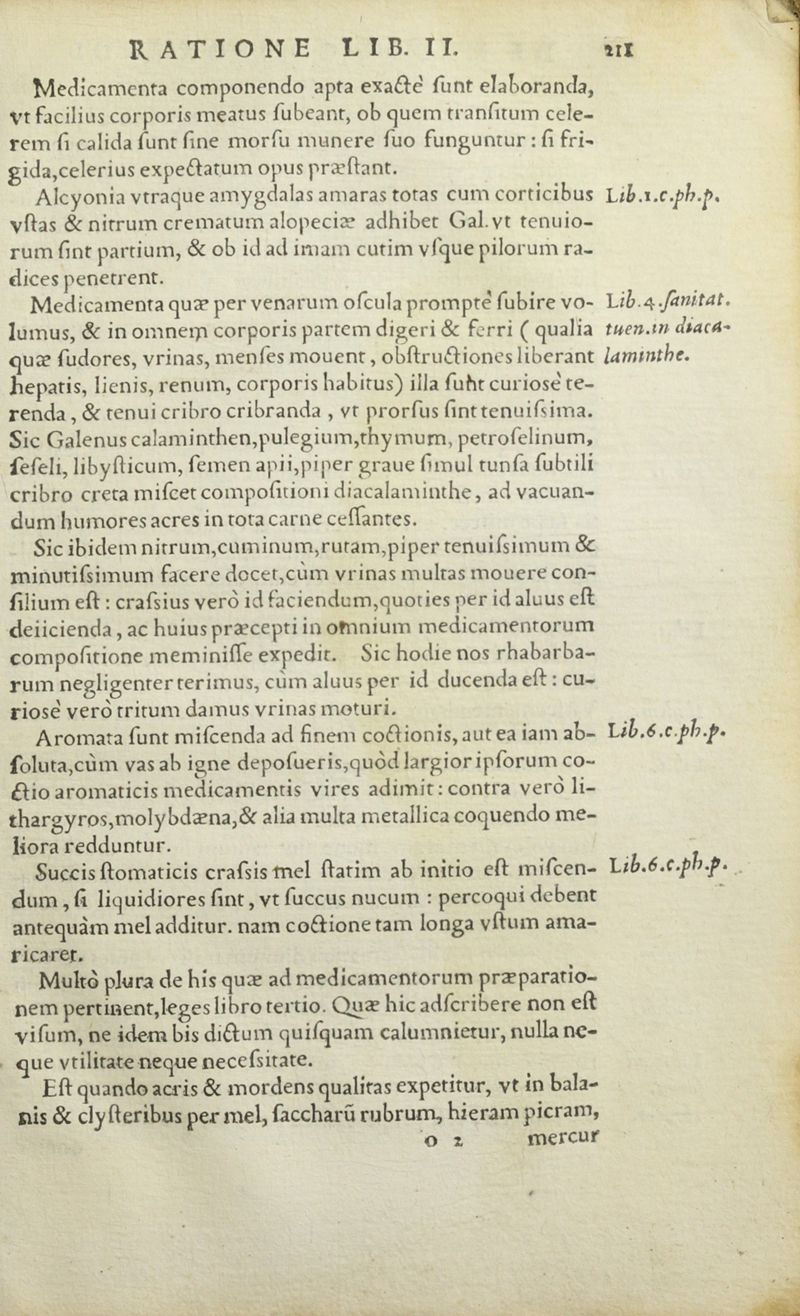 RATIONE LIB. II. 211
Medicamenta componendo apta exactè ſunt elaboranda,
vt facilius corporis meatus ſubeant, ob quem tranſitum cele-
rem ſi calida ſunt ſine morſu munere ſuo funguntur : ſi fri-
gida,celerius expectatum opus præſtant.
Alcyonia vtraque amygdalas amaras totas cum corticibus Lib.1.c.ph.p.
vſtas & nitrum crematum alopeciæ adhibet Gal.vt tenuio-
rum ſint partium, & ob id ad imam cutim vſque pilorum ra-
dices penetrent.
Medicamenta quæ per venarum oſcula promptè ſubire vo- Lib.4.ſanitat.
lumus, & in omnem corporis partem digeri & ferri ( qualia tuen.in diaca-
quæ ſudores, vrinas, menſes mouent, obſtructiones liberant laminthe.
hepatis, lienis, renum, corporis habitus) illa ſunt curiosè te-
renda, & tenui cribro cribranda , vt prorſus ſint tenuiſsima.
Sic Galenus calaminthen,pulegium,thymum, petroſelinum,
ſeſeli, libyſticum, ſemen apii,piper graue ſimul tunſa ſubtili
cribro creta miſcet compoſitioni diacalaminthe, ad vacuan-
dum humores acres in tota carne ceſſantes.
Sic ibidem nitrum,cuminum,rutam,piper tenuiſsimum &
minutiſsimum facere docet,cùm vrinas multas mouere con-
ſilium eſt : craſsius verò id faciendum,quoties per id aluus eſt
deiicienda, ac huius præcepti in omnium medicamentorum
compoſitione meminiſſe expedit. Sic hodie nos rhabarba-
rum negligenter terimus, cùm aluus per id ducenda eſt : cu-
riosè verò tritum damus vrinas moturi.
Aromata ſunt miſcenda ad finem coctionis, aut ea iam ab- Lib.6.c.ph.p.
ſoluta,cùm vas ab igne depoſueris,quòd largior ipſorum co-
ctio aromaticis medicamentis vires adimit : contra verò li-
thargyros,molybdæna,& alia multa metallica coquendo me-
liora redduntur.
Succis ſtomaticis craſsis mel ſtatim ab initio eſt miſcen- Lib.6.c.ph.p.
dum, ſi liquidiores ſint, vt ſuccus nucum : percoqui debent
antequàm mel additur. nam coctione tam longa vſtum ama-
ricaret.
Multò plura de his quæ ad medicamentorum præparatio-
nem pertinent,leges libro tertio. Quæ hic adſcribere non eſt
viſum, ne idem bis dictum quiſquam calumnietur, nulla ne-
que vtilitate neque neceſsitate.
Eſt quando acris & mordens qualitas expetitur, vt in bala-
nis & clyſteribus per mel, ſaccharū rubrum, hieram picram,
o 2 mercur